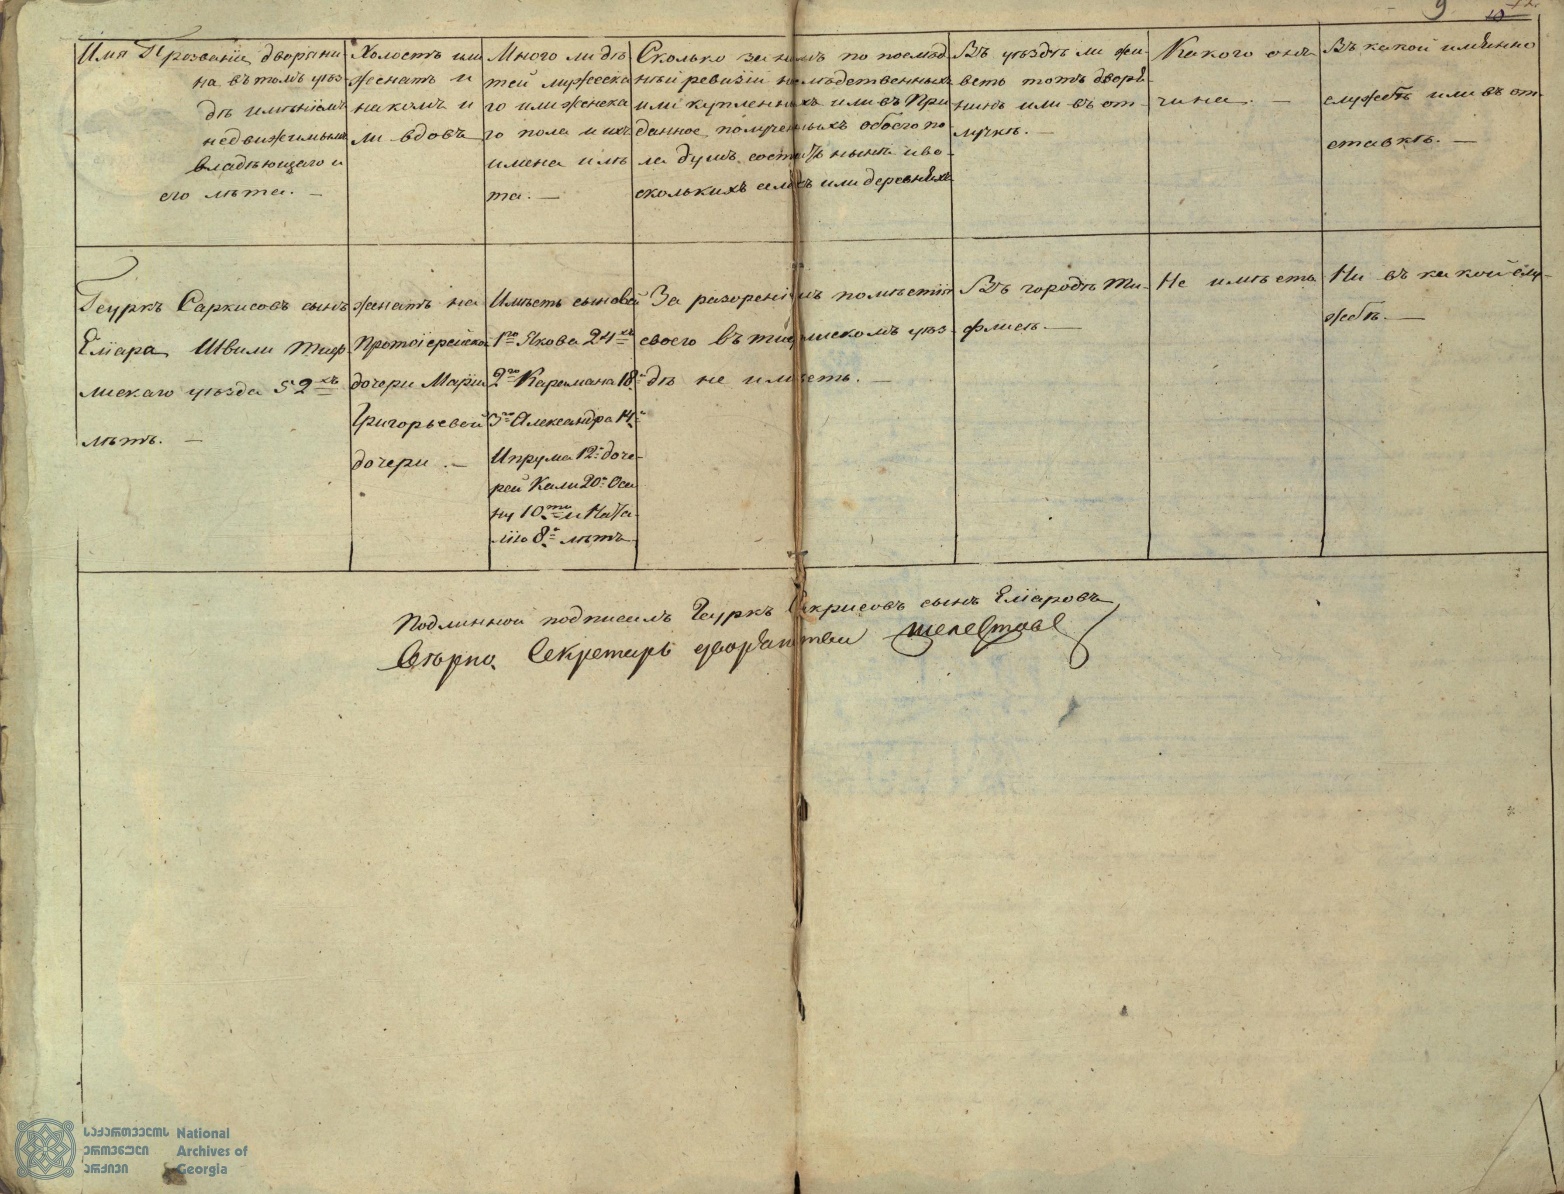 9
Имя Прозваніи дворяни
на въ томъ уѣз
дѣ имѣніемъ
недвижимымъ
владѣющаго и
его лѣта. —
Холостъ или
женатъ и
на комъ и
ли вдовъ
Много ли дѣ
тей мужеска
го или женска
го пола и ихъ
имена и лѣ
та. —
Сколько за нимъ по послѣд
нѣй ревизіи наслѣдственныхъ
или купленныхъ или въ при
данное полученныхъ обоего по
ла душъ состоитъ нынѣ и во
сколькихъ селахъ или деревняхъ
Въ уѣздѣ ли жи
ветъ тотъ дворя
нинъ или въ от-
лучкѣ. —
Какого онъ
чина. —
Въ какой имянно
службѣ или въ от-
ставкѣ. —
Геуркъ Саркисовъ сынъ
Еліара Швили Тиф
лискаго уѣзда 52хъ
лѣтъ. —
женатъ на
Протоіерейско
дочери Маріи
Григорьевой
дочери. —
Имѣетъ сыновей
1го Якова 24хъ
2го Карамана 18
3го Александра 14
Ипрума 12 доче-
рей Кали 20 Оси
ну 10ти и Ката-
лію 8 лѣтъ
За разореніемъ помѣстія
своего въ тифлискомъ уѣз
дѣ не имѣетъ. —
Въ городѣ Ти-
флисѣ —
Не имѣетъ
Ни въ какой слу-
жбѣ. —
Подлинной подписалъ Геуркъ Сакрисовъ сынъ Еліаровъ
Вѣрно. Секретарь дворянства Шелестовъ
საქართველოს
ეროვნული
არქივი
National
Archives of
Georgia